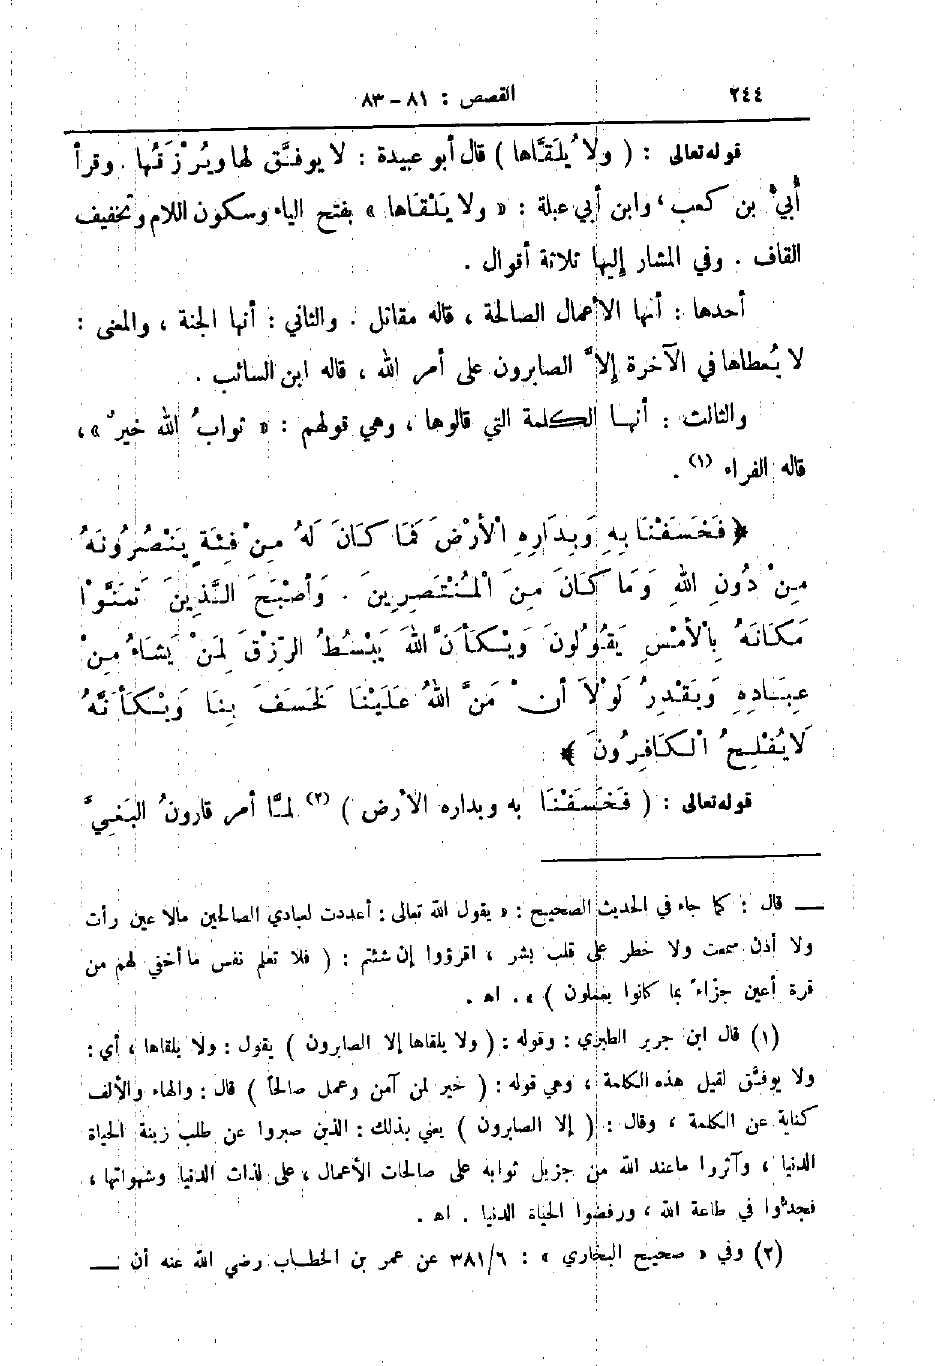 ٢٤٤ القصص : ٨١ – ٨٣
قوله تعالى : ( ولا يُلَقَّاها ) قال أبو عبيدة : لا يوفَّق لها ويُرْزَقُها . وقرأ
أُبيُّ بن كعب ، وابن أبي عبلة : « ولا يَلْقَاها » بفتح الياء وسكون اللام وتخفيف
القاف . وفي المشار إليها ثلاثة أقوال .
أحدها : أنها الأعمال الصالحة ، قاله مقاتل . والثاني : أنها الجنة ، والمعنى :
لا يُعطاها في الآخرة إلاَّ الصابرون على أمر الله ، قاله ابن السائب .
والثالث : أنها الكلمة التي قالوها ، وهي قولهم : « ثوابُ الله خيرٌ » ،
قاله الفراء (١) .
﴿ فَخَسَفْنَا بِهِ وَبِدَارِهِ الْأَرْضَ فَمَا كَانَ لَهُ مِنْ فِئَةٍ يَنْصُرُونَهُ
مِنْ دُونِ اللهِ وَمَا كَانَ مِنَ الْمُنْتَصِرِينَ . وَأَصْبَحَ الَّذِينَ تَمَنَّوْا
مَكَانَهُ بِالْأَمْسِ يَقُولُونَ وَيْكَأَنَّ اللهَ يَبْسُطُ الرِّزْقَ لِمَنْ يَشَاءُ مِنْ
عِبَادِهِ وَيَقْدِرُ لَوْلَا أَنْ مَنَّ اللهُ عَلَيْنَا لَخَسَفَ بِنَا وَيْكَأَنَّهُ
لَا يُفْلِحُ الْكَافِرُونَ ﴾
قوله تعالى : ( فَخَسَفْنَا به وبداره الأرض ) (٢) لمَّا أمر قارونُ البَغيَّ
— قال : كما جاء في الحديث الصحيح : « يقول الله تعالى : أعددت لعبادي الصالحين مالا عين رأت
ولا أذن سمعت ولا خطر على قلب بشر ، اقرؤوا إن شئتم : ( فلا تعلم نفس ما أخفي لهم من
قرة أعين جزاءً بما كانوا يعملون ) » . اه .
(١) قال ابن جرير الطبري : وقوله : ( ولا يلقاها إلا الصابرون ) يقول : ولا يلقاها ، أي :
ولا يوفَّق لقيل هذه الكلمة ، وهي قوله : ( خير لمن آمن وعمل صالحاً ) قال : والهاء والألف
كناية عن الكلمة ، وقال : ( إلا الصابرون ) يعني بذلك : الذين صبروا عن طلب زينة الحياة
الدنيا ، وآثروا ماعند الله من جزيل ثوابه على صالحات الأعمال ، على لذات الدنيا وشهواتها ،
فجدُّوا في طاعة الله ، ورفضوا الحياة الدنيا . اه .
(٢) وفي « صحيح البخاري » : ٣٨١/٦ عن عمر بن الخطاب رضي الله عنه أن —